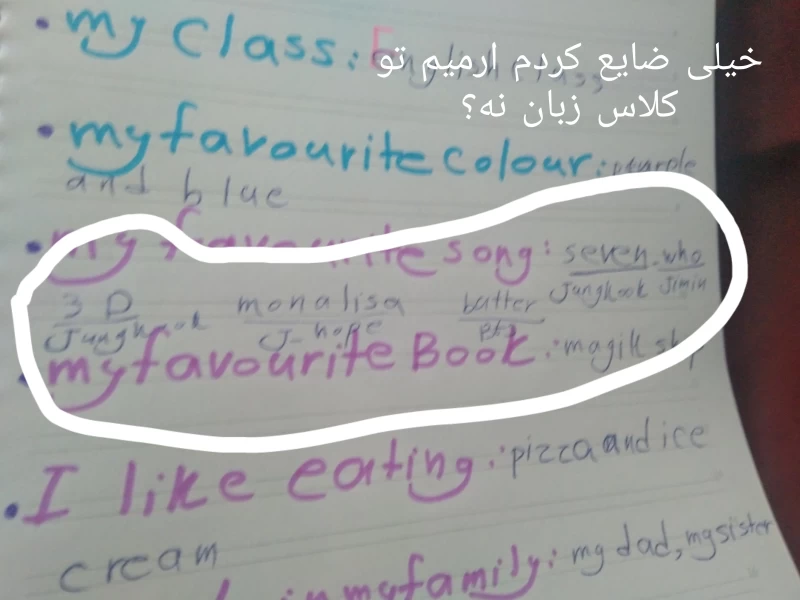 my Class: English class
خیلی ضایع کردم ارمیم تو
کلاس زبان نه؟
my favourite colour: purple
and blue
my favourite song: seven. who
Jungkook Jimin
3 D monalisa butter
Jungkook J-hope bts
my favourite Book: magik shop
I like eating: pizza and ice
cream
in my family: my dad, my sister